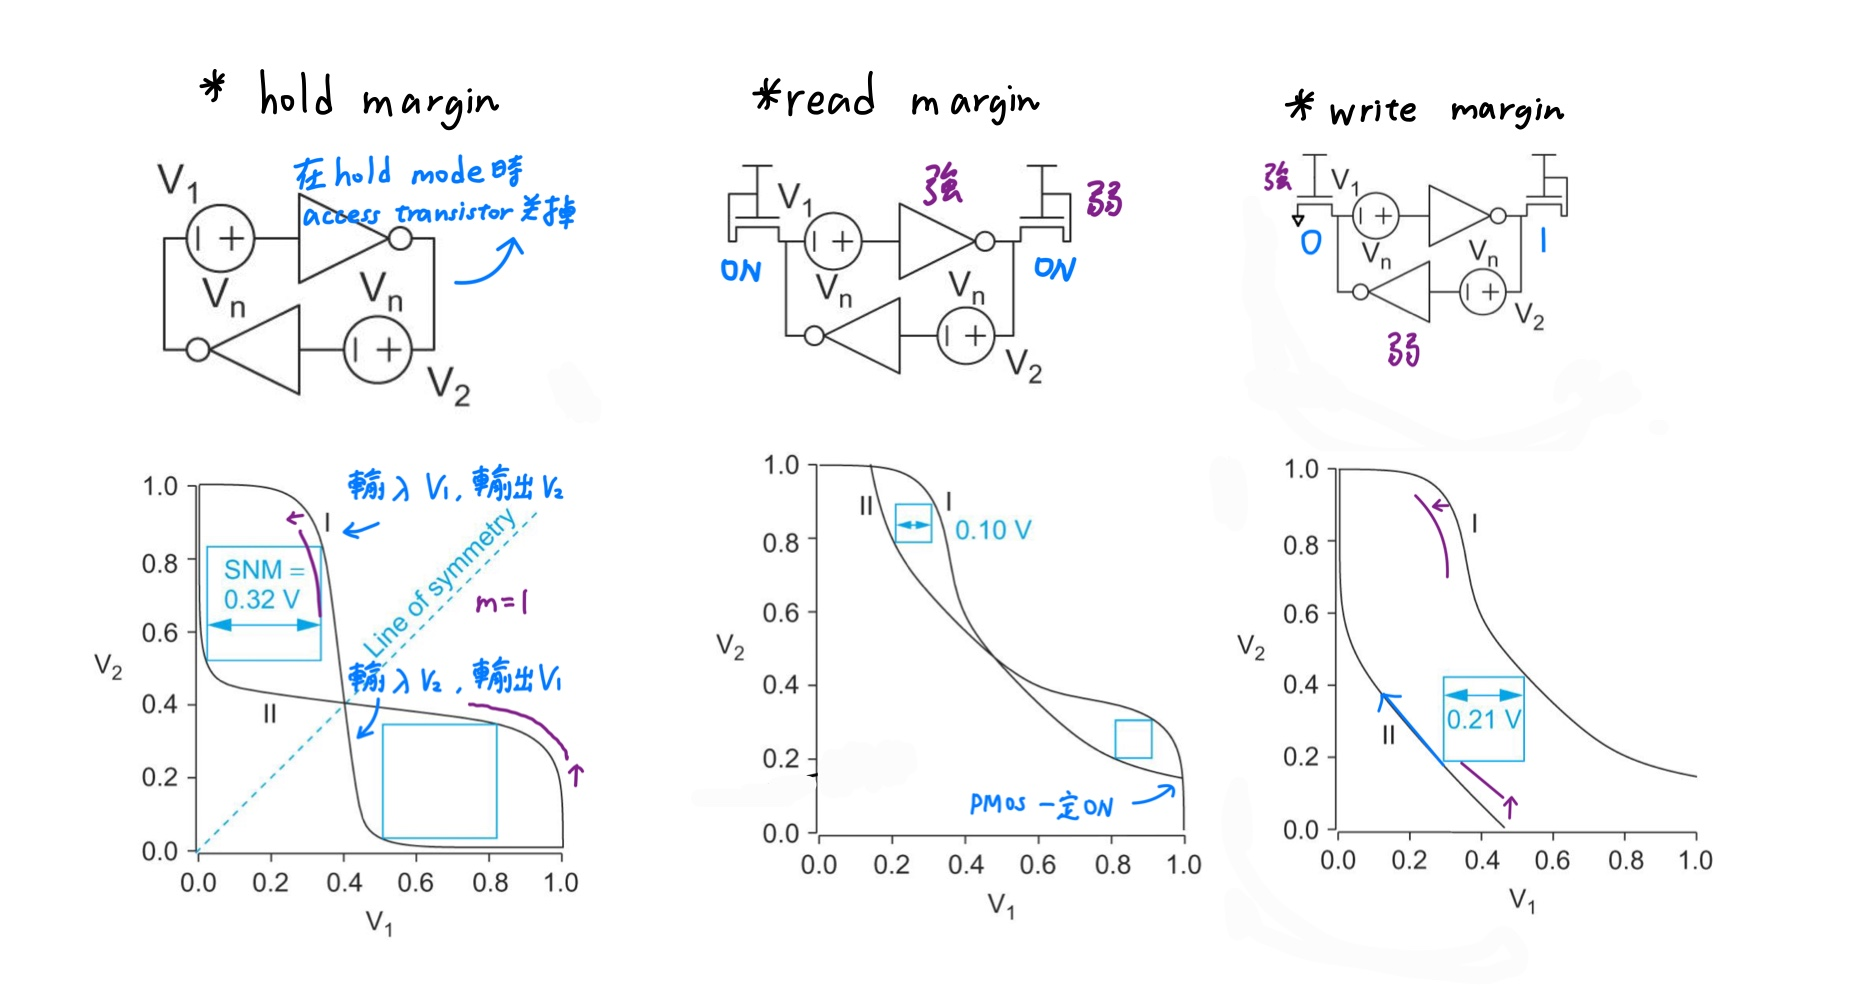 * hold margin
V1
在hold mode時
access transistor关掉
Vn
Vn
V2
1.0
0.8
0.6
0.4
0.2
0.0
V2
輸入 V1, 輸出 V2
I
SNM =
0.32 V
Line of symmetry
m=1
輸入 V2, 輸出V1
II
0.0 0.2 0.4 0.6 0.8 1.0
V1
*read margin
強
弱
V1
ON
ON
Vn
Vn
V2
1.0
0.8
0.6
0.4
0.2
0.0
V2
II
I
0.10 V
PMOS 一定ON
0.0 0.2 0.4 0.6 0.8 1.0
V1
* write margin
強
V1
0
1
Vn
Vn
V2
弱
1.0
0.8
0.6
0.4
0.2
0.0
V2
I
0.21 V
II
0.0 0.2 0.4 0.6 0.8 1.0
V1